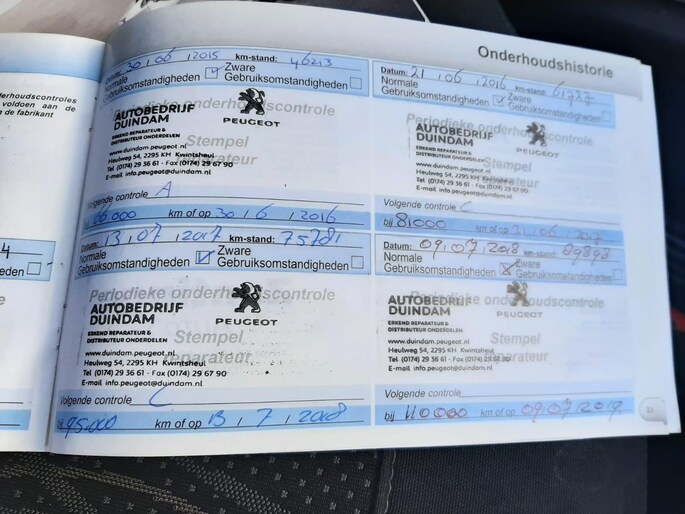 Onderhoudshistorie
derhoudscontroles
voldoen aan de
de fabrikant
4
Datum: 30 / 06 / 2015 km-stand: 46213
Normale
Gebruiksomstandigheden ✓ Zware
Gebruiksomstandigheden
Periodieke onderhoudscontrole
AUTOBEDRIJF
DUINDAM
PEUGEOT
ERKEND REPARATEUR &
DISTRIBUTEUR ONDERDELEN
Stempel
reparateur
www.duindam.peugeot.nl
Heulweg 54, 2295 KH Kwintsheul
Tel (0174) 29 36 61 - Fax (0174) 29 67 90
E-mail info.peugeot@duindam.nl
Volgende controle A
bij 66000 km of op 30 / 6 / 2016
Datum: 21 / 06 / 2016 km-stand: 61727
Normale
Gebruiksomstandigheden ✓ Zware
Gebruiksomstandigheden
Periodieke onderhoudscontrole
AUTOBEDRIJF
DUINDAM
PEUGEOT
ERKEND REPARATEUR &
DISTRIBUTEUR ONDERDELEN
Stempel
reparateur
www.duindam.peugeot.nl
Heulweg 54, 2295 KH Kwintsheul
Tel (0174) 29 36 61 - Fax (0174) 29 67 90
E-mail info.peugeot@duindam.nl
Volgende controle C
bij 81000 km of op 21 / 06 / 2017
Datum: 13 / 07 / 2017 km-stand: 75781
Normale
Gebruiksomstandigheden ✓ Zware
Gebruiksomstandigheden
Periodieke onderhoudscontrole
AUTOBEDRIJF
DUINDAM
PEUGEOT
ERKEND REPARATEUR &
DISTRIBUTEUR ONDERDELEN
Stempel
reparateur
www.duindam.peugeot.nl
Heulweg 54, 2295 KH Kwintsheul
Tel (0174) 29 36 61 - Fax (0174) 29 67 90
E-mail info.peugeot@duindam.nl
Volgende controle C
bij 95000 km of op 13 / 7 / 2018
Datum: 09 / 07 / 2018 km-stand: 89893
Normale
Gebruiksomstandigheden X Zware
Gebruiksomstandigheden
Periodieke onderhoudscontrole
AUTOBEDRIJF
DUINDAM
PEUGEOT
ERKEND REPARATEUR &
DISTRIBUTEUR ONDERDELEN
Stempel
reparateur
www.duindam.peugeot.nl
Heulweg 54, 2295 KH Kwintsheul
Tel (0174) 29 36 61 - Fax (0174) 29 67 90
E-mail info.peugeot@duindam.nl
Volgende controle
bij 110000 km of op 09 / 07 / 2019